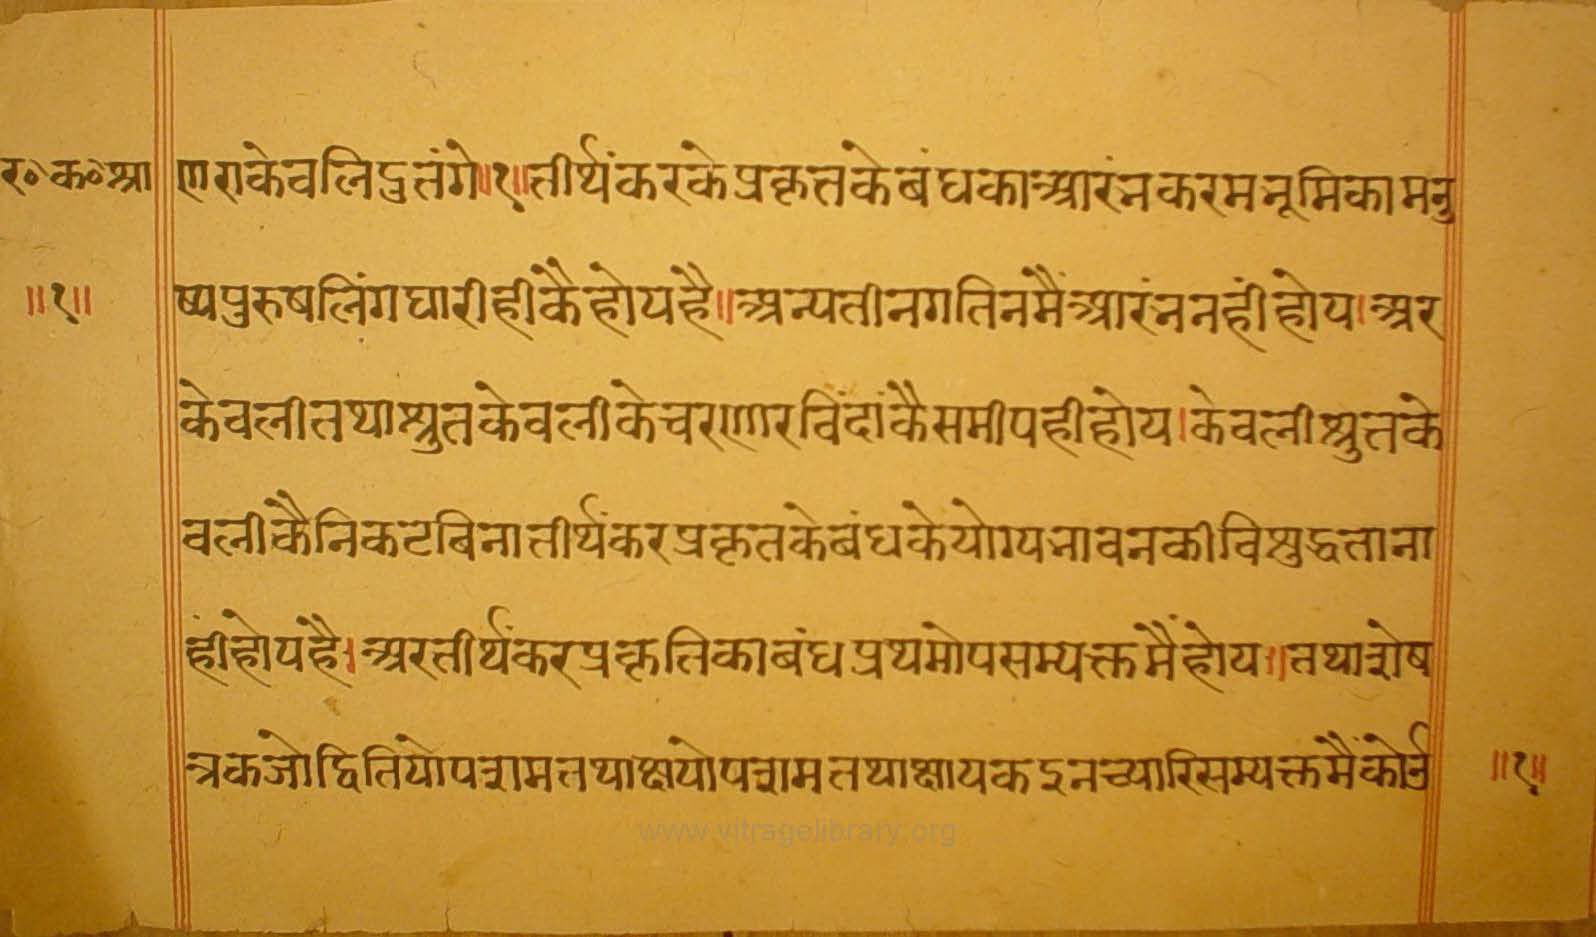 र॰क॰श्रा
णराकेवलिदुत्तंगे॥१॥तीर्थंकरकेप्रकृत्तकेबंधकाआरंभकरमभूमिकामनु
॥१॥
ष्यपुरुषलिंगधारीहीकैहोयहै॥अन्यतीनगतिनमैंआरंभनहींहोय।अर
केवलीतथाश्रुतकेवलीकेचरणारविंदांकैसमीपहीहोय।केवलीश्रुतके
वलीकैनिकटबिनातीर्थंकरप्रकृतकेबंधकेयोग्यभावनकीविशुद्धताना
हींहोयहै।अरतीर्थंकरप्रकृतिकाबंधप्रथमोपसम्यक्तमैंहोय॥तथाशेष
त्रकजोद्वितियोपशमतथाक्षयोपशमतथाक्षायकइनच्यारिसम्यक्तमैंकोई
॥१॥
www.vitragelibrary.org